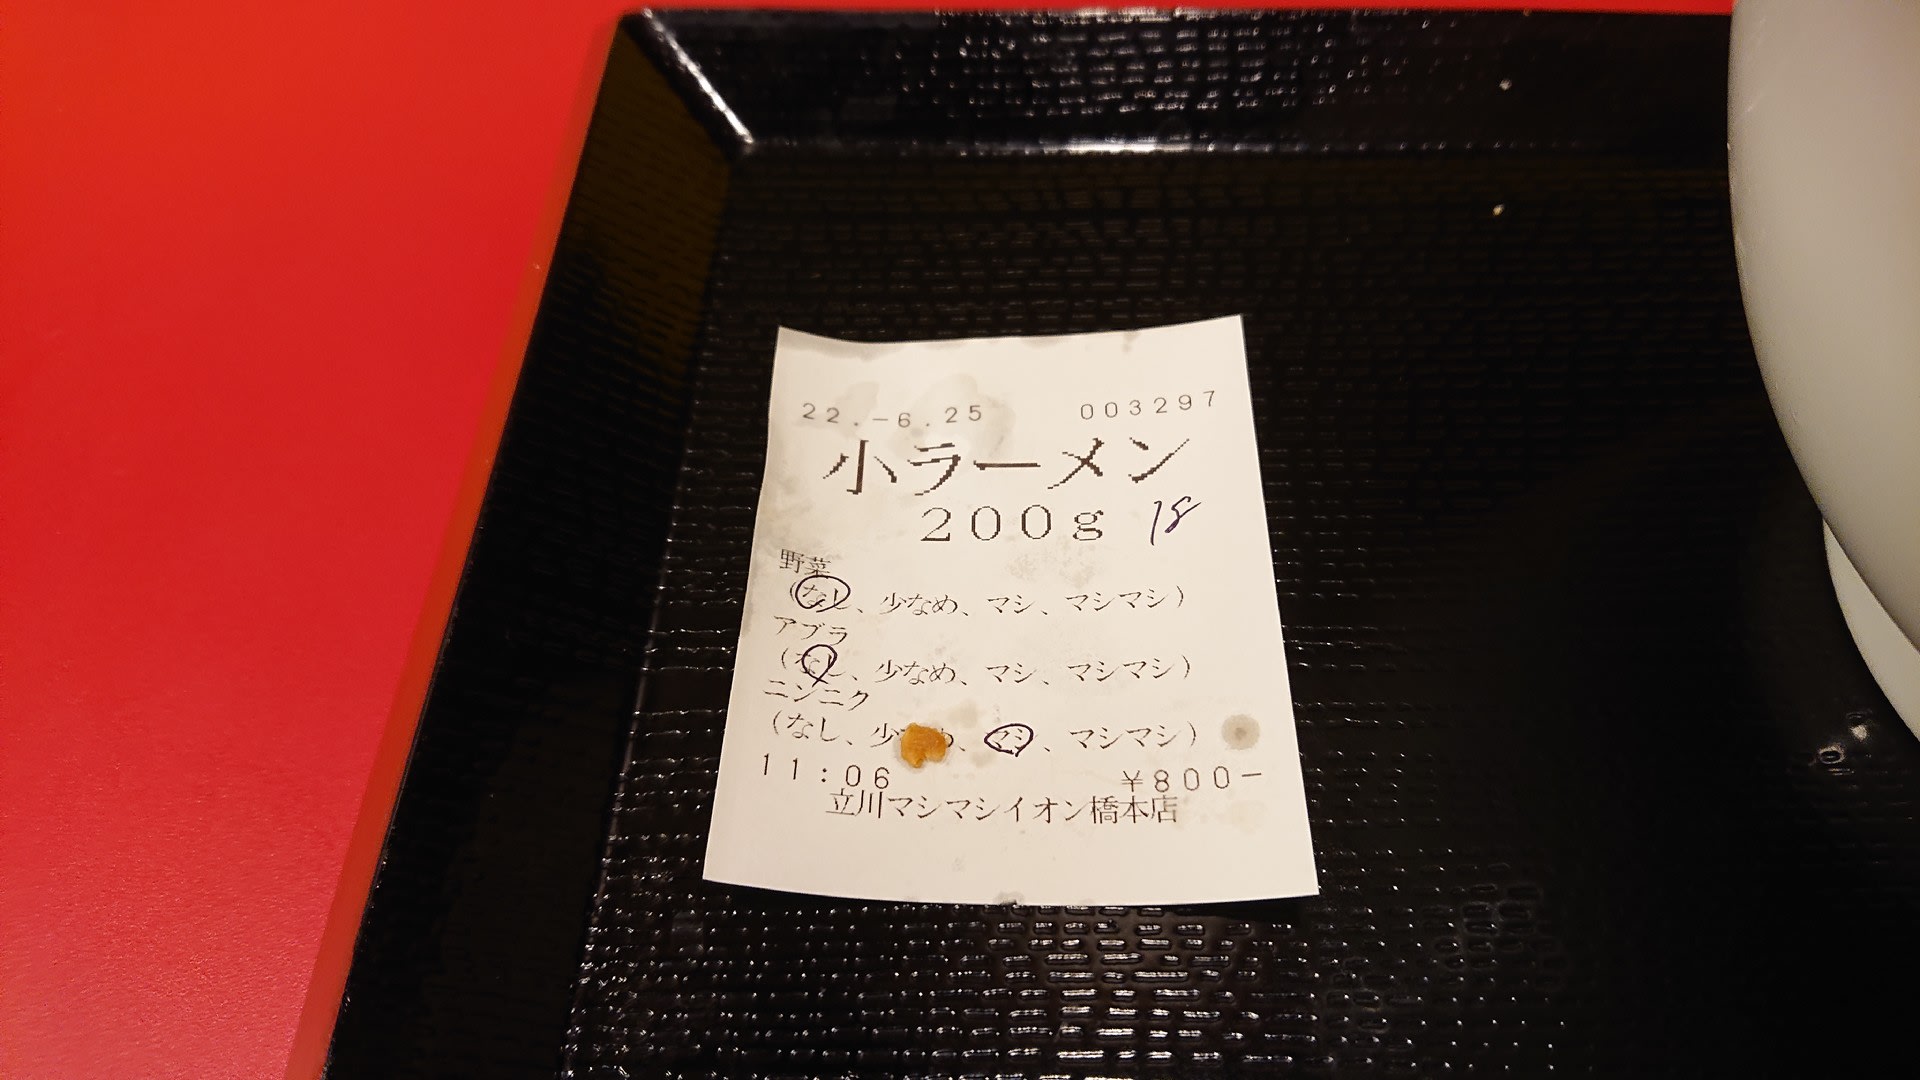 22.-6.25 003297
小ラーメン
200g 18
野菜
(なし、少なめ、マシ、マシマシ)
アブラ
(なし、少なめ、マシ、マシマシ)
ニンニク
(なし、少なめ、マシ、マシマシ)
11:06 ¥800-
立川マシマシイオン橋本店